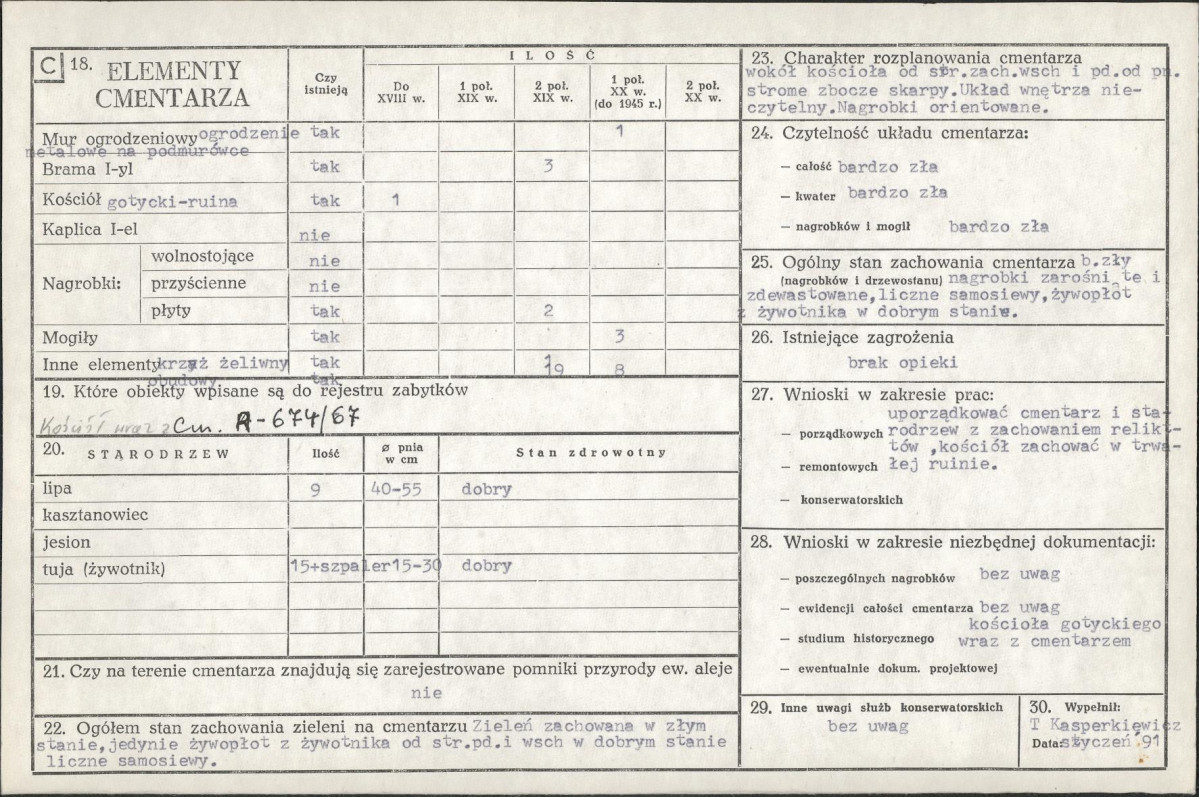 C 18. ELEMENTY CMENTARZA
Czy istnieją
I L O Ś Ć
Do XVIII w.
1 poł. XIX w.
2 poł. XIX w.
1 poł. XX w. (do 1945 r.)
2 poł. XX w.
Mur ogrodzeniowy ogrodzenie tak 1
metalowe na podmurówce
Brama I-yl tak 3
Kościół gotycki-ruina tak 1
Kaplica I-el nie
Nagrobki:
wolnostojące nie
przyścienne nie
płyty tak 2
Mogiły tak 3
Inne elementy krzyż żeliwny tak 1
obudowy tak 19 8
19. Które obiekty wpisane są do rejestru zabytków
Kościół wraz z Cm. A-674/67
20. STARODRZEW Ilość ø pnia w cm Stan zdrowotny
lipa 9 40-55 dobry
kasztanowiec
jesion
tuja (żywotnik) 15+szpaler 15-30 dobry
21. Czy na terenie cmentarza znajdują się zarejestrowane pomniki przyrody ew. aleje
nie
22. Ogółem stan zachowania zieleni na cmentarzu Zieleń zachowana w złym
stanie,jedynie żywopłot z żywotnika od str.pd.i wsch w dobrym stanie
liczne samosiewy.
23. Charakter rozplanowania cmentarza
wokół kościoła od str.zach.wsch i pd.od pn.
strome zbocze skarpy.Układ wnętrza nie-
czytelny.Nagrobki orientowane.
24. Czytelność układu cmentarza:
— całość bardzo zła
— kwater bardzo zła
— nagrobków i mogił bardzo zła
25. Ogólny stan zachowania cmentarza b.zły
(nagrobków i drzewostanu) nagrobki zarośnięte i
zdewastowane,liczne samosiewy,żywopłot
z żywotnika w dobrym stanie.
26. Istniejące zagrożenia
brak opieki
27. Wnioski w zakresie prac:
uporządkować cmentarz i sta-
— porządkowych rodrzew z zachowaniem relik-
tów ,kościół zachować w trwa-
— remontowych łej ruinie.
— konserwatorskich
28. Wnioski w zakresie niezbędnej dokumentacji:
— poszczególnych nagrobków bez uwag
— ewidencji całości cmentarza bez uwag
kościoła gotyckiego
— studium historycznego wraz z cmentarzem
— ewentualnie dokum. projektowej
29. Inne uwagi służb konserwatorskich
bez uwag
30. Wypełnił:
T Kasperkiewicz
Data: styczeń 91